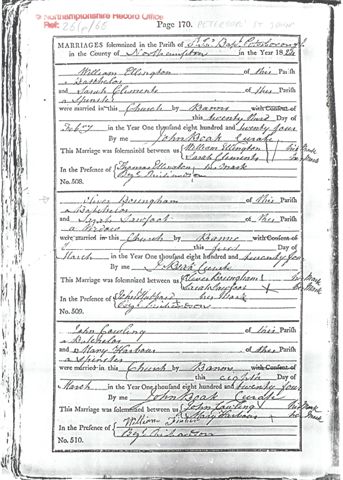 Northamptonshire Record Office
Ref: 261p/66
Page 170. PETERBORO' ST JOHN
MARRIAGES solemnized in the Parish of St Jno Bapt Peterborough
in the County of Northampton in the Year 1824
William Ellington of this Parish
a Batchelor
and Sarah Clements of this Parish
a Spinster
were married in this Church by Banns with Consent of
this twenty third Day of
Feby in the Year One thousand eight hundred and twenty four
By me John Boak Curate
This Marriage was solemnized between us William Ellington his Mark
Sarah Clements her Mark
In the Presence of Thomas his Mark
Richardson
No. 508.
Oliver Boringham of this Parish
a Batchelor
and Sarah of this Parish
a Widow
were married in this Church by Banns with Consent of
this first Day of
March in the Year One thousand eight hundred and twenty four
By me J Boak Curate
This Marriage was solemnized between us Oliver Boringham his Mark
Sarah her Mark
In the Presence of John his Mark
Richardson
No. 509.
John Cowling of this Parish
a Batchelor
and Mary Harbour of this Parish
a Spinster
were married in this Church by Banns with Consent of
this eighth Day of
March in the Year One thousand eight hundred and twenty four
By me John Boak Curate
This Marriage was solemnized between us John Cowling his Mark
Mary Harbour her Mark
In the Presence of William Fisher
Richardson
No. 510.